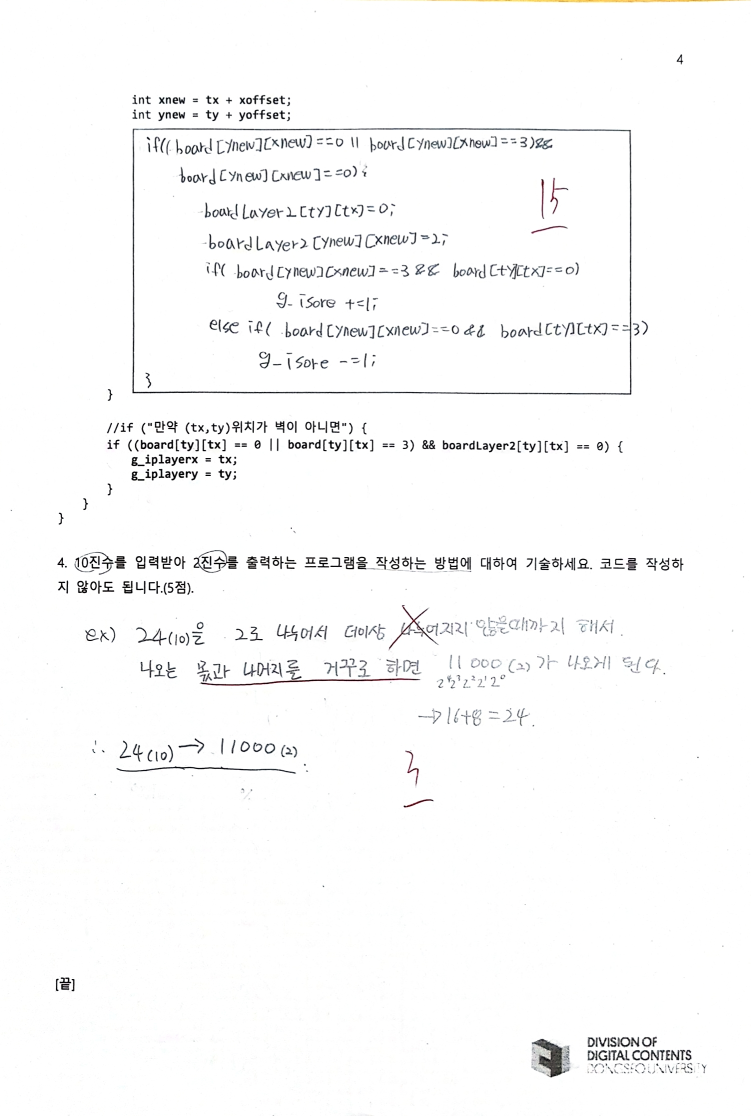 4
int xnew = tx + xoffset;
int ynew = ty + yoffset;
if(( board[ynew][xnew]==0 || board[ynew][xnew]==3)&&
board[ynew][xnew]==0) {
boardLayer2[ty][tx]=0;
boardLayer2[ynew][xnew]=2;
if( board[ynew][xnew]==3 && board[ty][tx]==0)
g_isore +=1;
else if( board[ynew][xnew]==0 && board[ty][tx]==3)
g_isore -=1;
}
15
}
//if ("만약 (tx,ty)위치가 벽이 아니면") {
if ((board[ty][tx] == 0 || board[ty][tx] == 3) && boardLayer2[ty][tx] == 0) {
g_iplayerx = tx;
g_iplayery = ty;
}
}
}
4. 10진수를 입력받아 2진수를 출력하는 프로그램을 작성하는 방법에 대하여 기술하세요. 코드를 작성하
지 않아도 됩니다.(5점).
ex) 24(10)을 2로 나누어서 더이상 나누어지지 않을때까지 해서.
나오는 몫과 나머지를 거꾸로 하면 11000(2)가 나오게 된다.
2⁴2³2²2¹2⁰
→16+8=24.
∴ 24(10)→11000(2).
3
[끝]
DIVISION OF
DIGITAL CONTENTS
DONGSEO UNIVERSITY